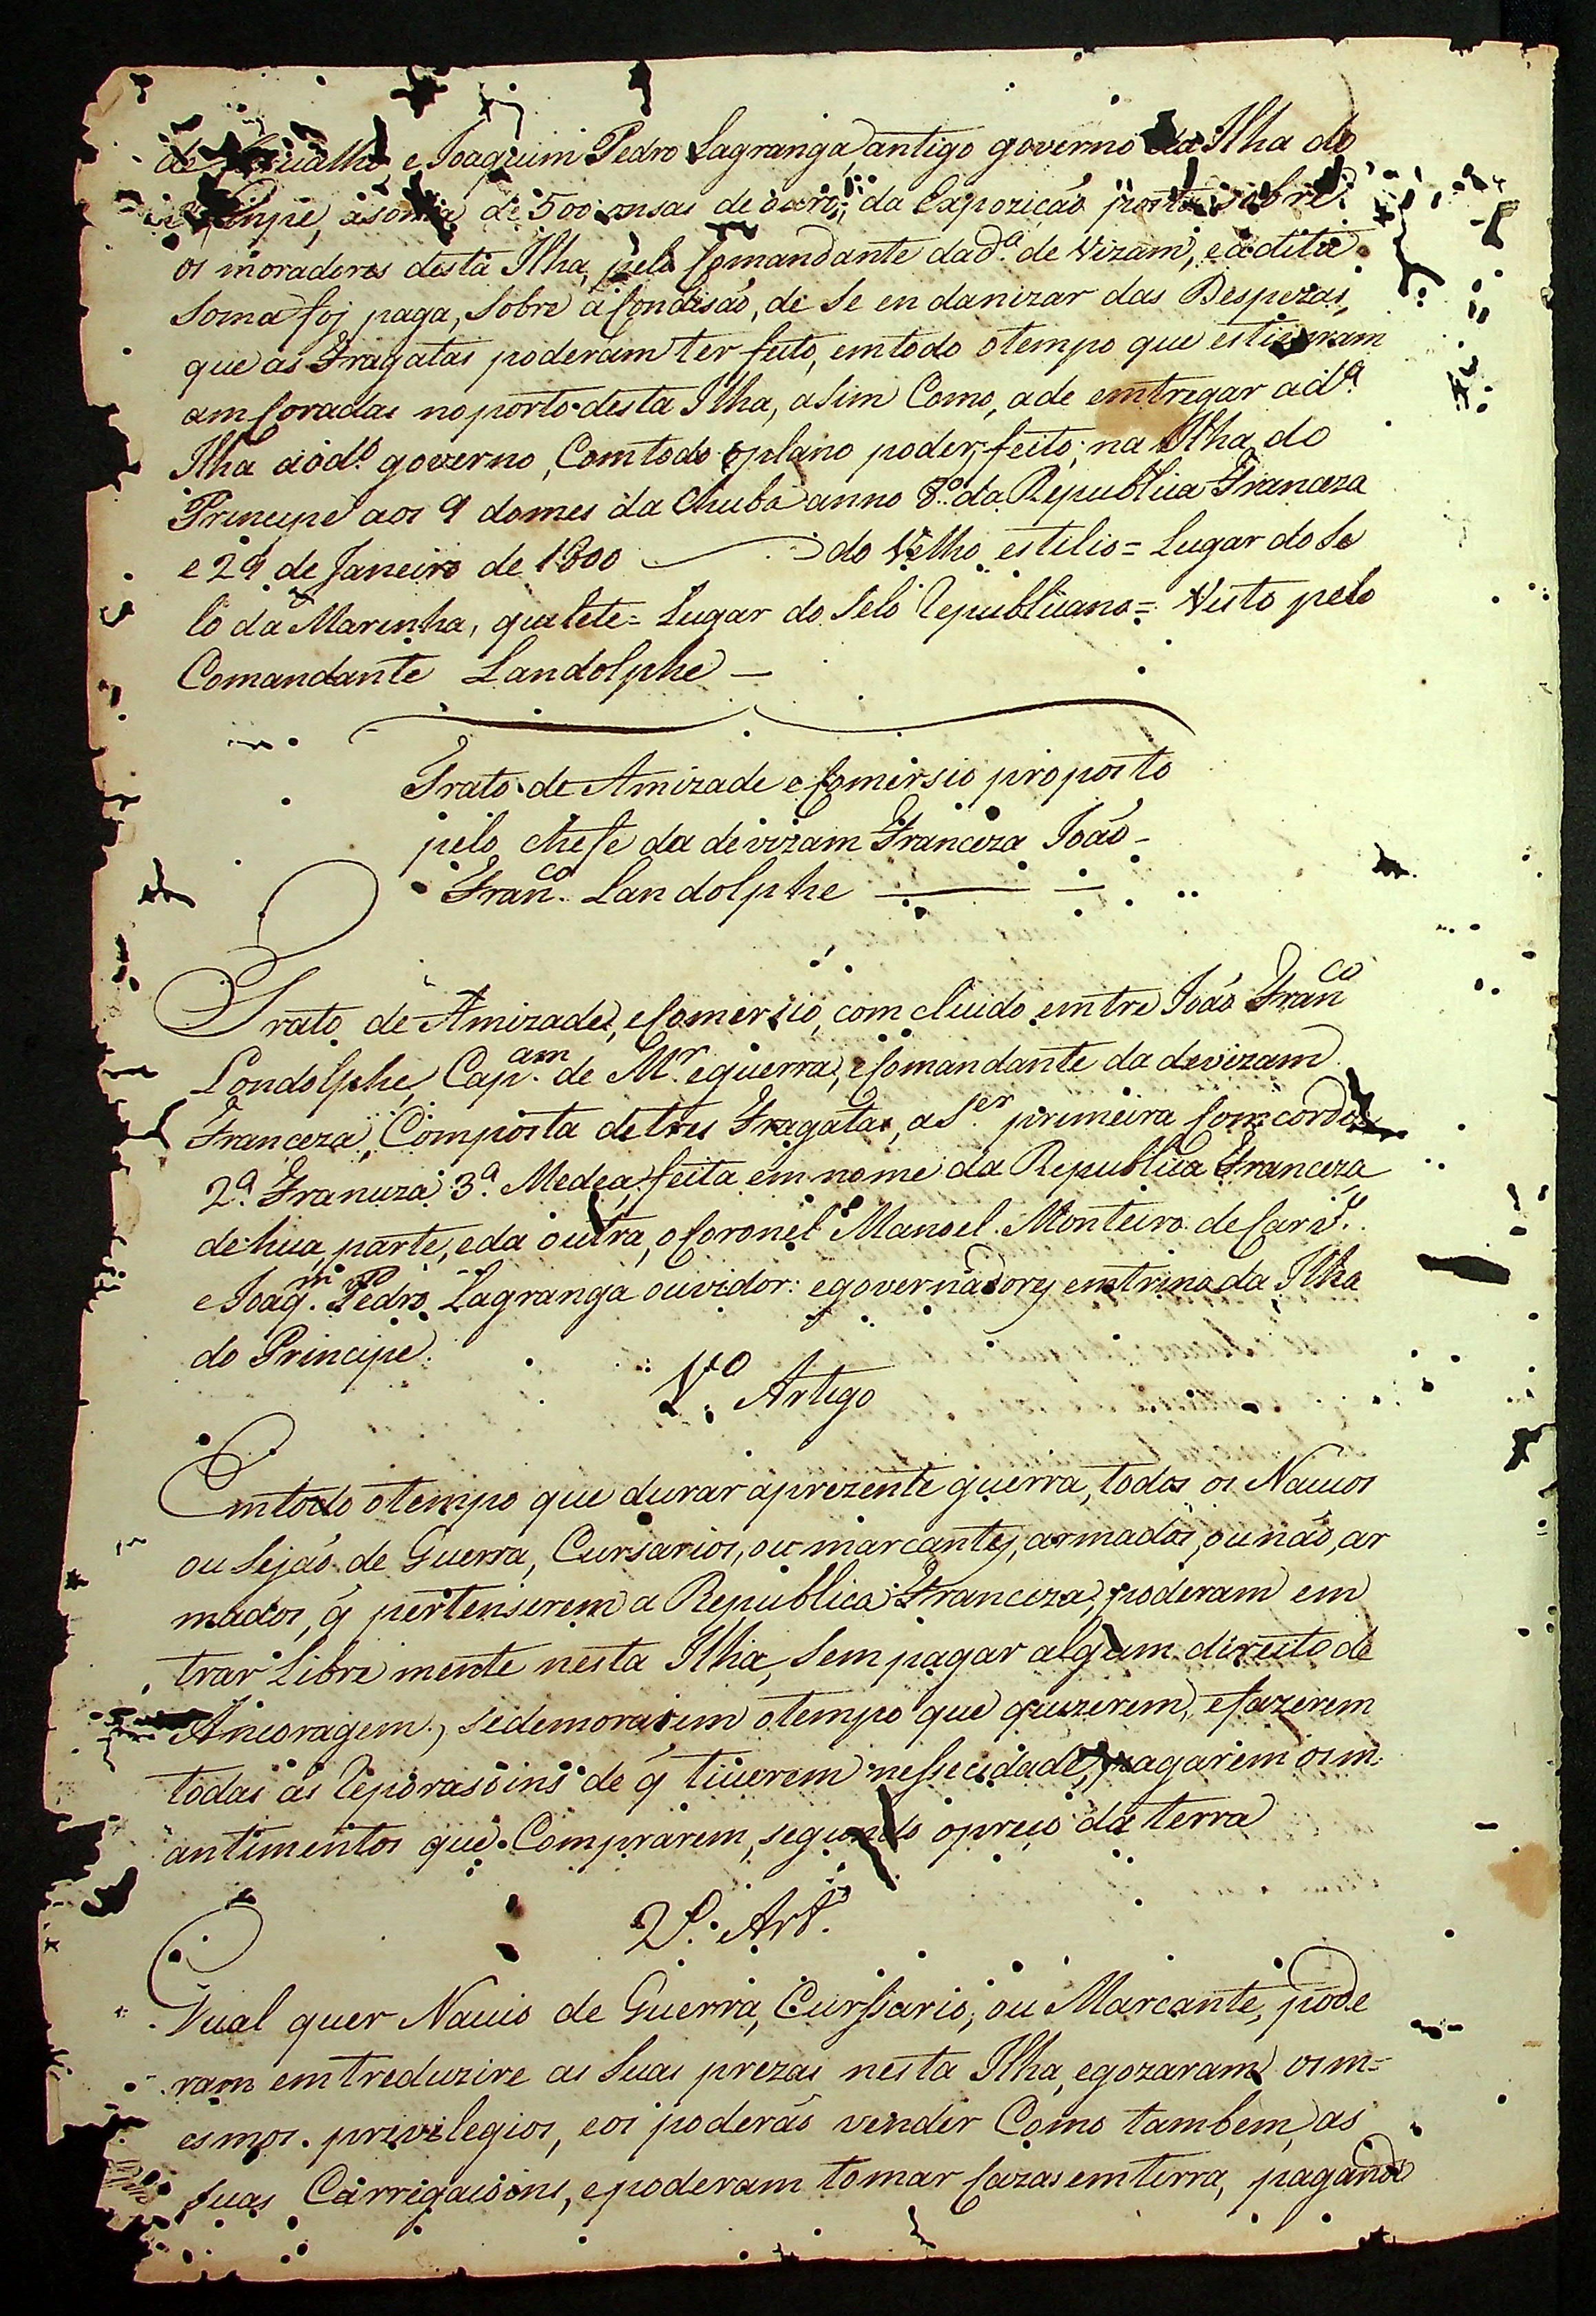 de Carualho, e Joaquim Pedro Lagranga, antigo governo da Ilha do
Prinsipe, asoma de 500 onsas de ouro; da Expozicaõ posta sobre
os moradores desta Ilha, pelo Comandante da d.ª de Vizam, e a dita
Soma foj paga, Sobre a Condisaõ, de Se en danizar das Despezas,
que as Fragatas poderam ter feito, em todo o tempo que estiveram
amCoradas no porto desta Ilha, aSim Como, ade emtregar a d.ª
Ilha ao d.º governo, Com todo o plano poder; feito; na Ilha do
Principe aos 9 do mes da Chuba anno 8.º da Republica Franceza
e 29 de Janeiro de 1800 do Velho estilio = Lugar do Se
lo da Marinha, = Lugar do Selo Republicano = Visto pelo
Comandante Landolphe —
Trato de Amizade e Comersio proposto
pelo chefe da devizam Franceza Joaõ -
Fran.co Landolphe
Trato de Amizade, e Comersio, com cluido emtre Joaõ Fran.co
Londolphe, Cap.am de M.r e guerra, e Comandante da devizam
Franceza, Composta de tres Fragatas, a S.er primeira Comcordo
2.ª Franceza 3.ª Medea, feita em nome da Republica Franceza
de hua, parte, e da outra, o Coronel Manoel Monteiro de Carv.º
e Joaq.m Pedro Lagranga ouvidor: e governadores emtrino da Ilha
do Principe.
1.º Artigo
Em todo o tempo que durar aprezente guerra, todos os Nauios
ou Sejaõ de Guerra, Cursarios, ou marcantes, armados, ou naõ, ar
mados, q̃ pertenserem a Republica Franceza, poderam em
trar Libre mente nesta Ilha, Sem pagar algum direito de
Ancoragem, se demorarem o tempo que quizerem, e fazerem
todas as Reporasoins de q̃ tiuerem nessecidade, pagarem os m.
antimentos que Comprarem, segundo o preco da terra
2.º Art.º
Qual quer Nauio de Guerra, Curssario, ou Marcante, pode
ram emtreduzire as Suas prezas nesta Ilha, e gozaram os m=
esmos privilegios, e os poderaõ vender Como tambem, as
suas Carrigacoins, e poderam tomar Cazas em terra, pagando